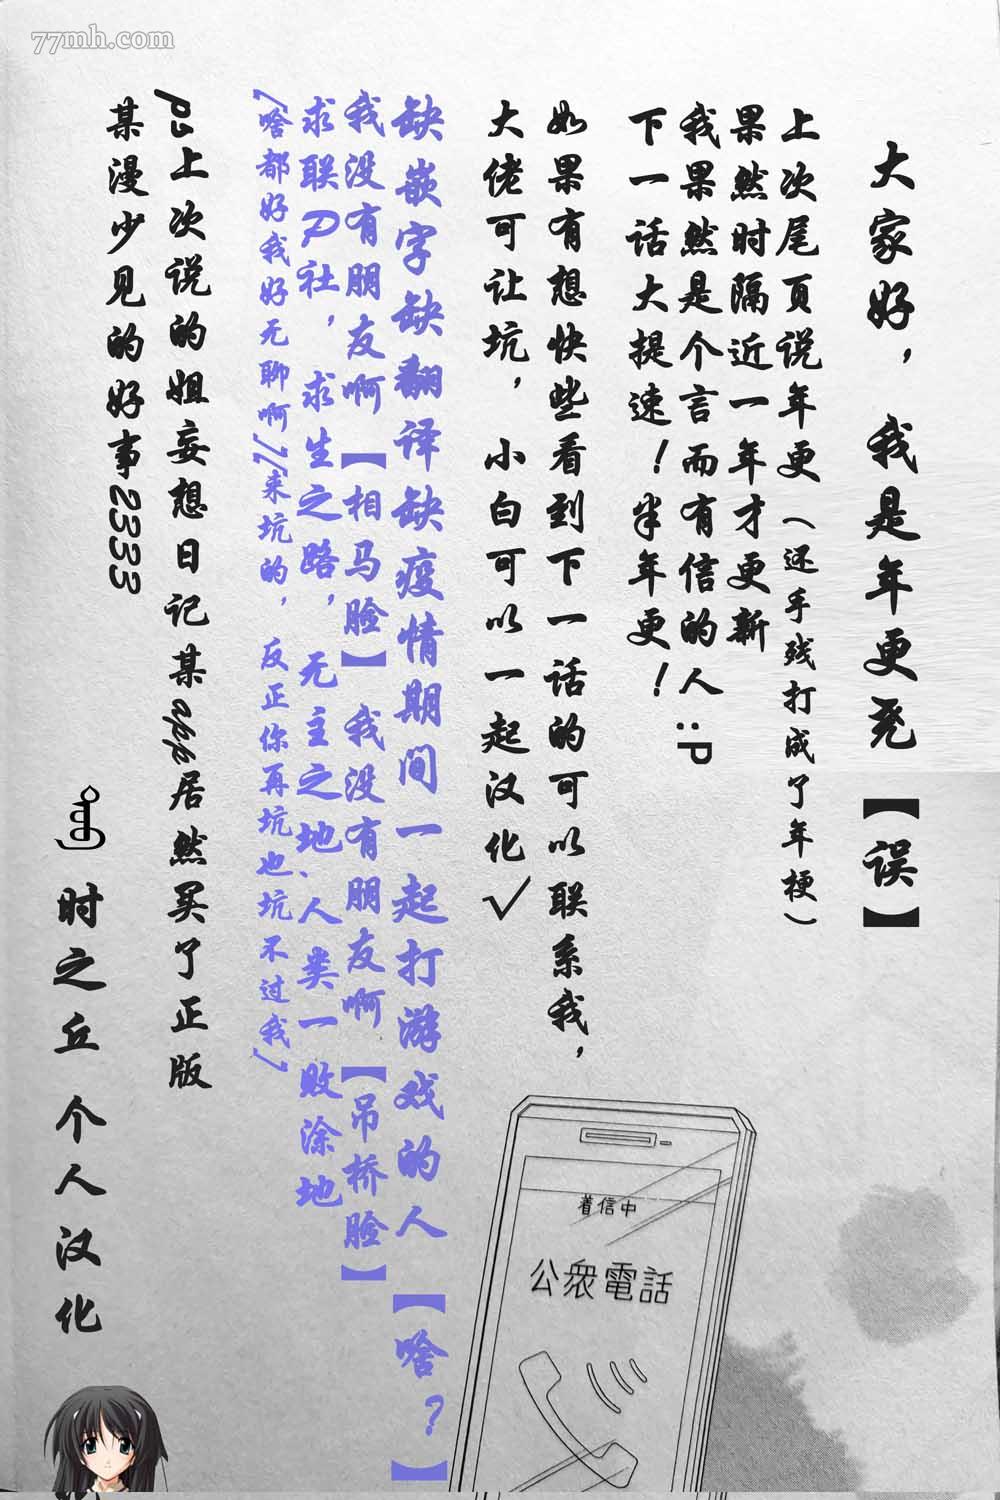 77mh.com
大家好，我是年更尧【误】
上次尾页说年更（还手残打成了年梗）
果然时隔近一年才更新
我果然是个言而有信的人:P
下一话大提速！半年更！
如果有想快些看到下一话的可以联系我，
大佬可让坑，小白可以一起汉化√
缺嵌字缺翻译缺疫情期间一起打游戏的人【啥？】
我没有朋友啊【相马脸】我没有朋友啊【吊桥脸】
求联P社，求生之路，无主之地、人类一败涂地
[啥都好我好无聊啊][来坑的，反正你再坑也坑不过我]
ps上次说的姐妄想日记某app居然买了正版
某漫少见的好事2333
时之丘个人汉化
着信中
公衆電話